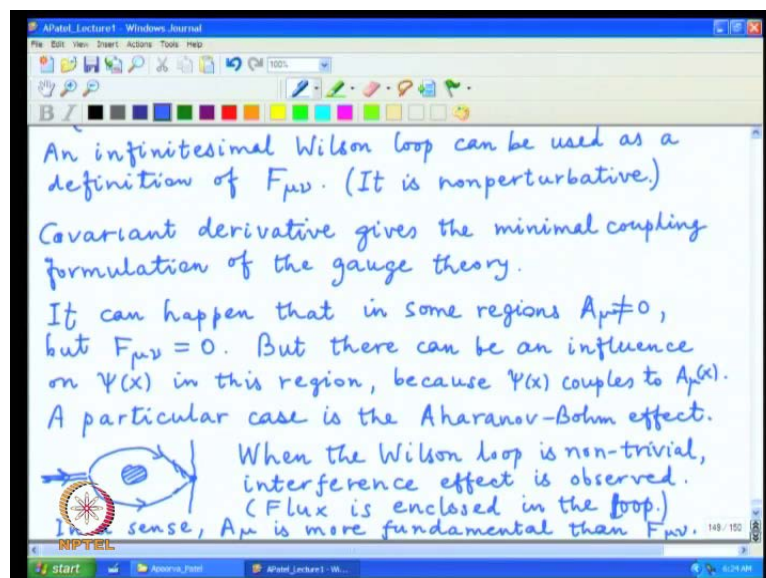 APatel_Lecture1 - Windows Journal
File Edit View Insert Actions Tools Help
100%
B I
An infinitesimal Wilson loop can be used as a
definition of Fμν. (It is nonperturbative.)
Covariant derivative gives the minimal coupling
formulation of the gauge theory.
It can happen that in some regions Aμ≠0,
but Fμν = 0. But there can be an influence
on Ψ(x) in this region, because Ψ(x) couples to Aμ(x).
A particular case is the Aharanov-Bohm effect.
When the Wilson loop is non-trivial,
interference effect is observed.
(Flux is enclosed in the loop.)
In a sense, Aμ is more fundamental than Fμν.
149 / 150
NPTEL
start Apoorva_Patel APatel_Lecture1 - Wi... 6:29 AM